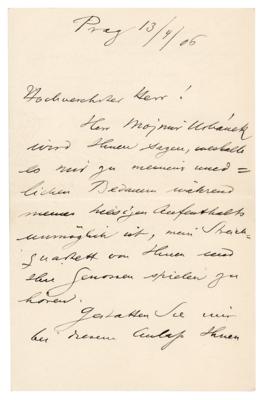 Prag 13/4/06
Hochverehrter Herr!
Herr Mojmir Urbánek
wird Ihnen sagen, weshalb
es mir zu meinem unend=
lichen Bedauern während
meines hiesigen Aufenthalts
unmöglich ist, mein Streich-
quartett von Ihnen und
Ihren Genossen spielen zu
hören.
Gestatten Sie mir
bei diesem Anlaß Ihnen